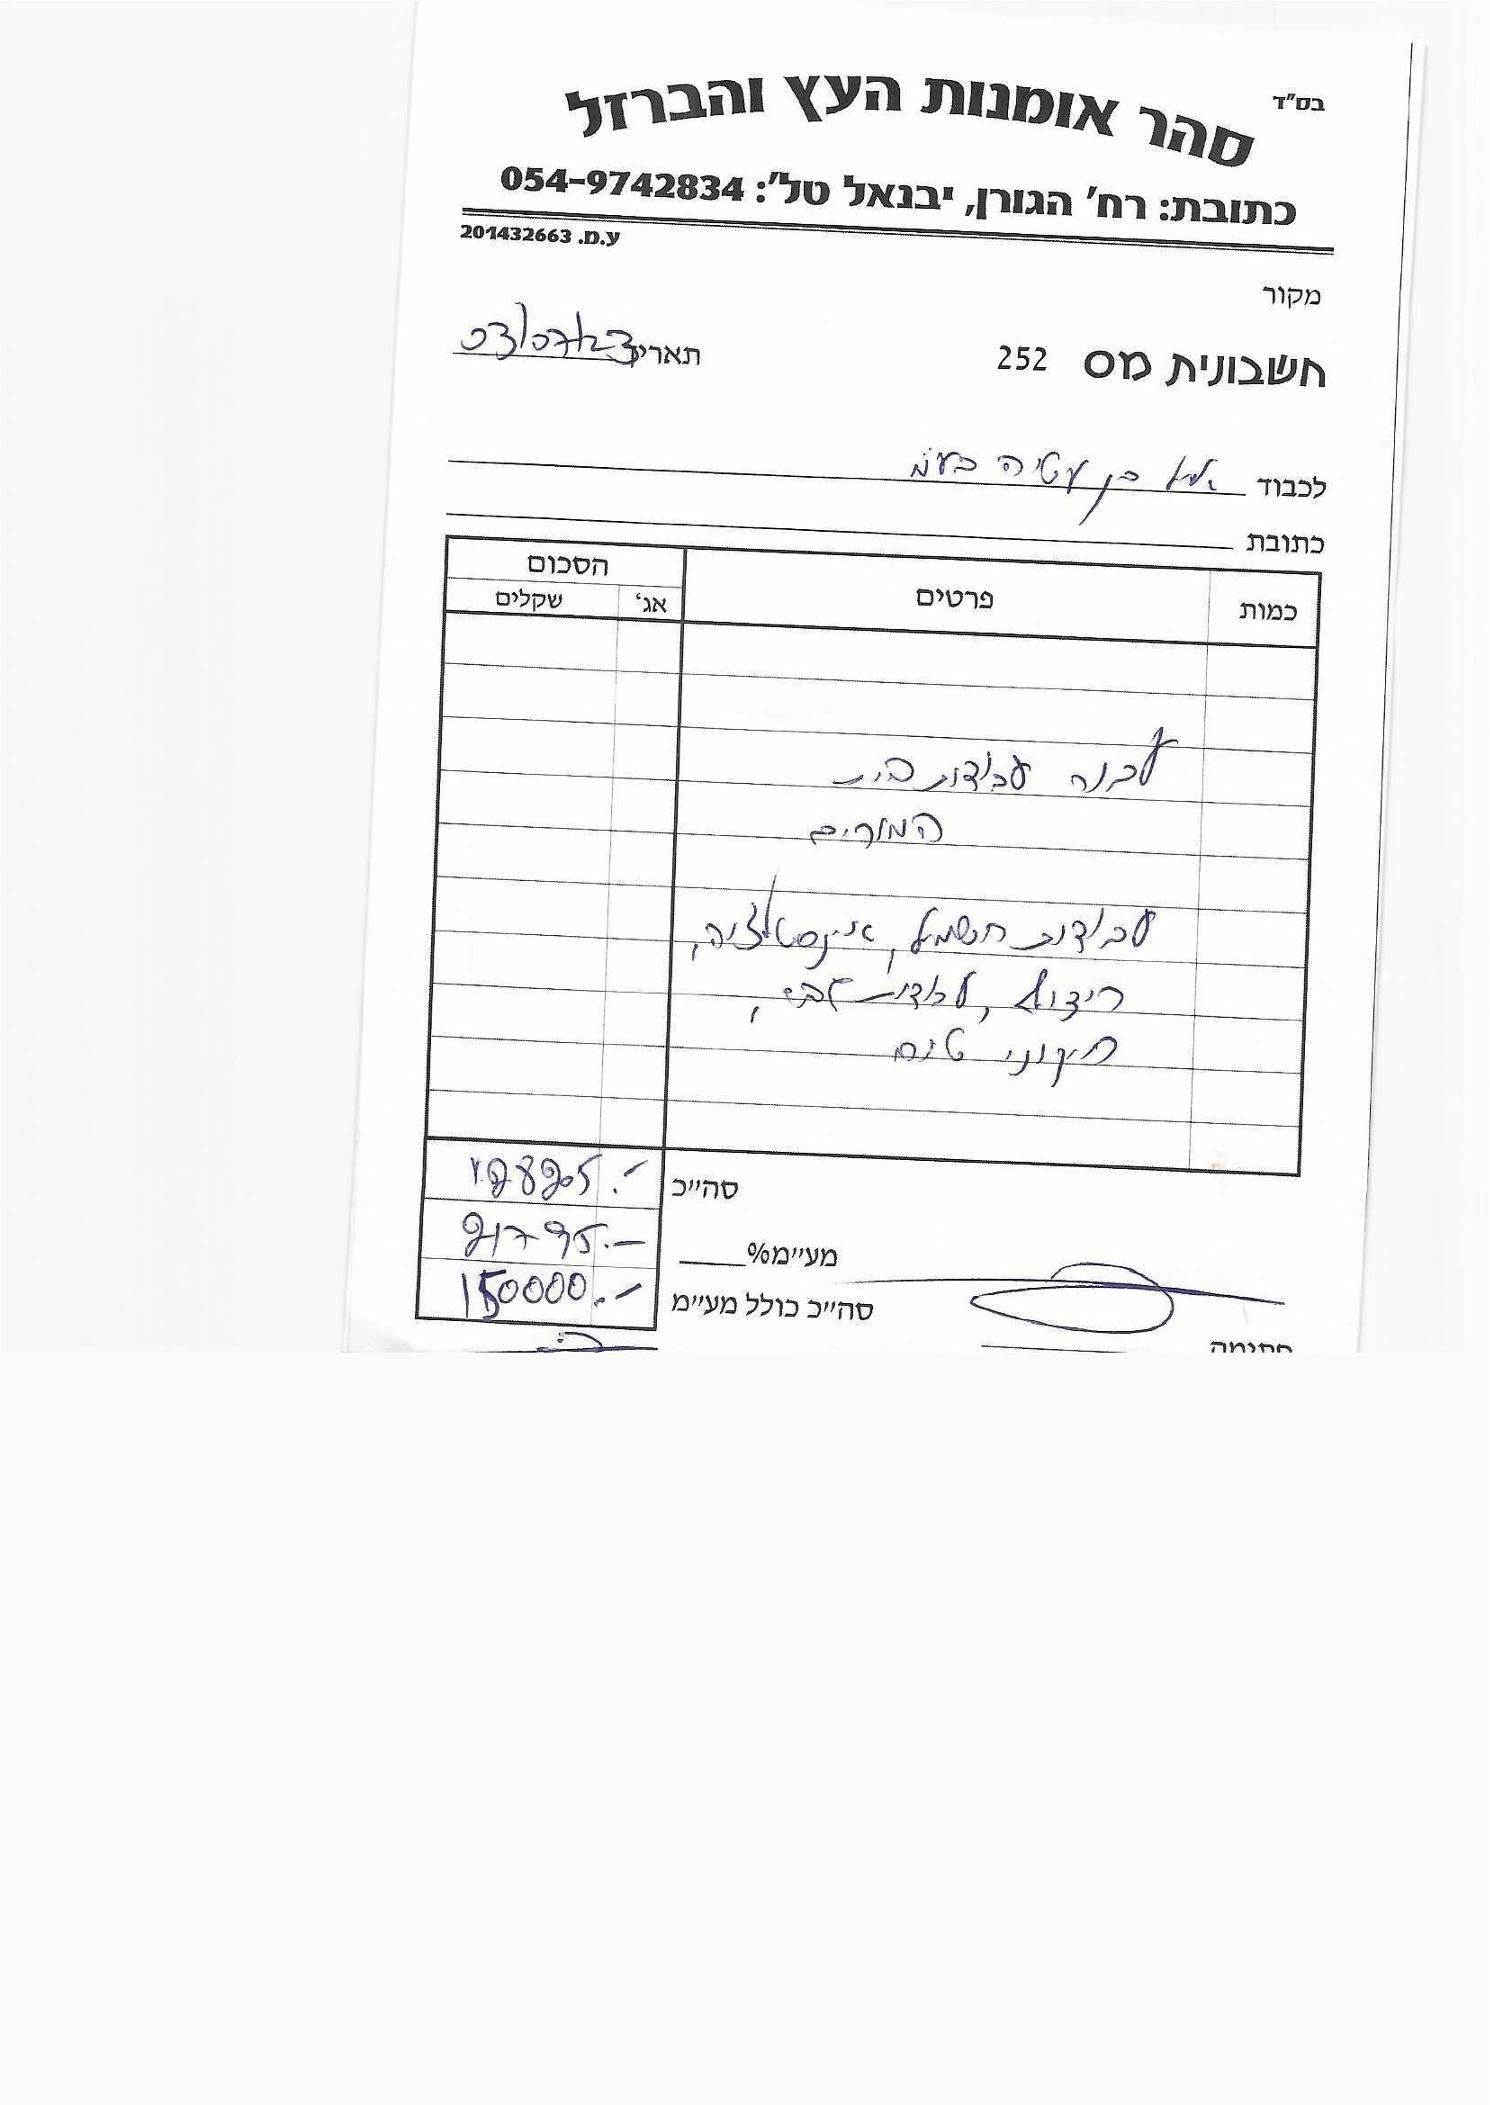 בס"ד
סהר אומנות העץ והברזל
כתובת: רח' הגורן, יבנאל טל': 054-9742834
ע.מ. 201432663
מקור
חשבונית מס 252 תאריך 03/07/23
לכבוד בן עטיה בע"מ
כתובת
כמות פרטים הסכום
אג' שקלים
עבודות בית
המורים
עבודות חשמל, אינסטלציה,
ריצוף, עבודות גבס,
תיקוני טיח
סה״כ 128205.-
מע״מ% 21795.-
סה״כ כולל מע״מ 150000.-
חתימה